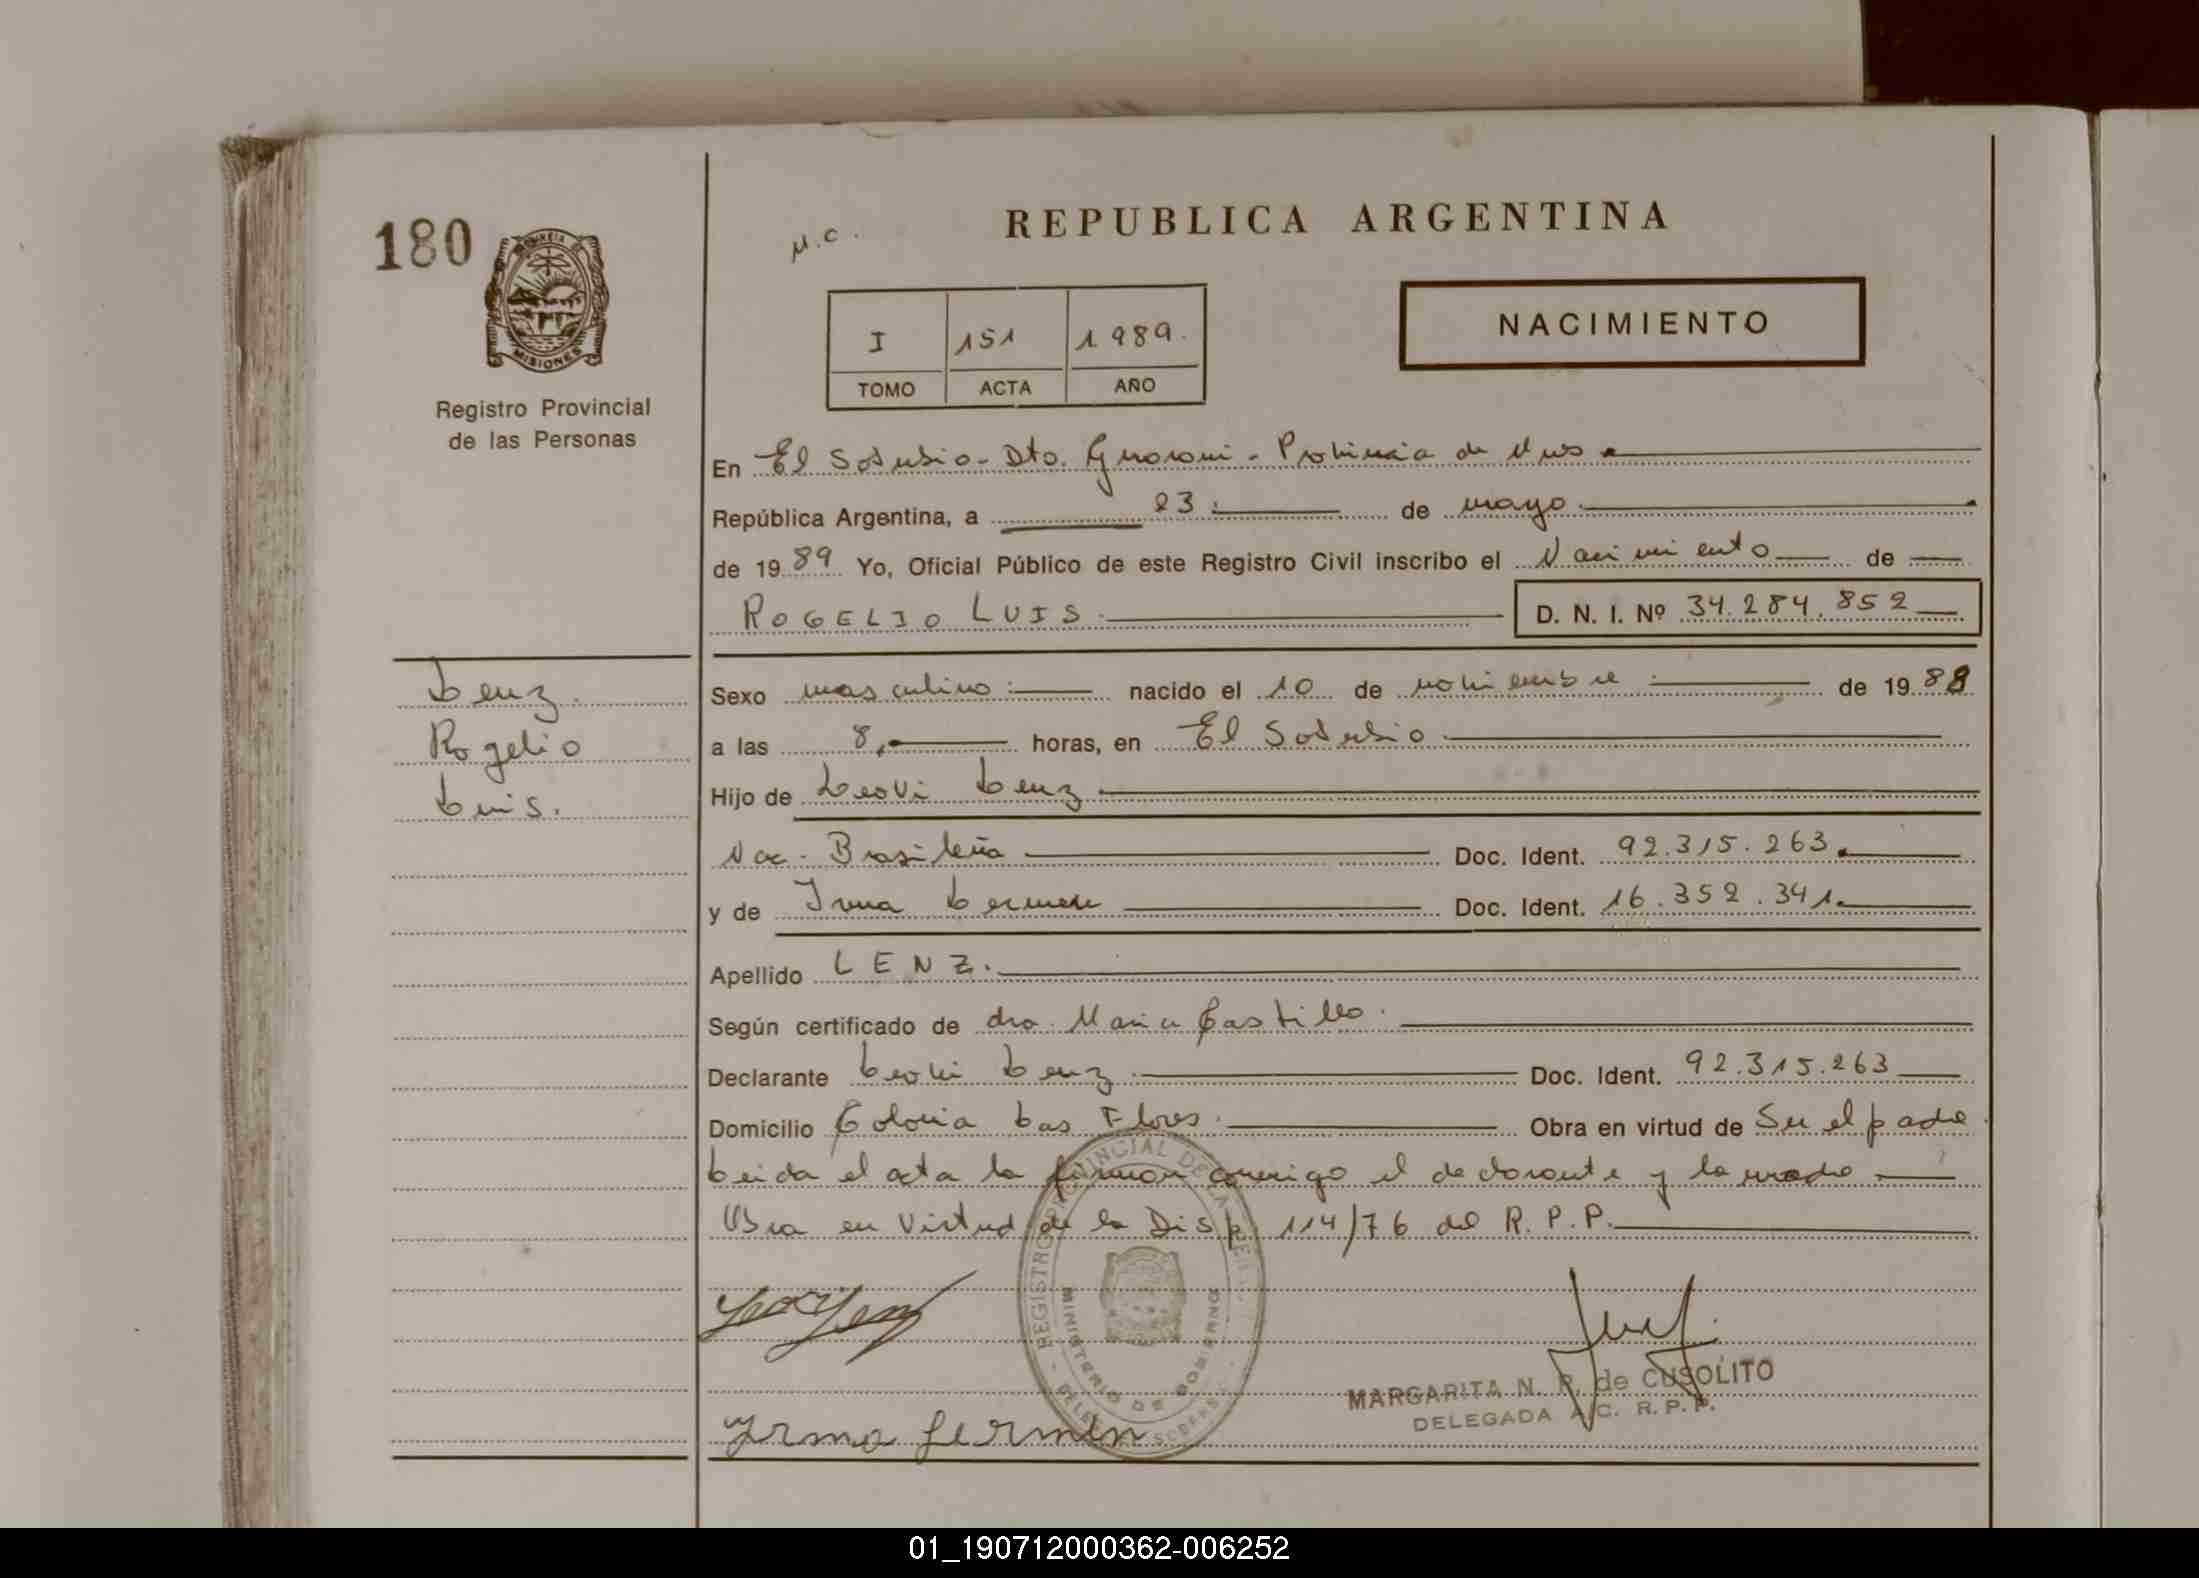 180
REPUBLICA ARGENTINA
M.C.
NACIMIENTO
I 151 1989.
TOMO ACTA AÑO
MISIONES
Registro Provincial
de las Personas
En El Soberbio - Dto. Guarani - Provincia de Mnes
República Argentina, a 23 de mayo
de 1989 Yo, Oficial Público de este Registro Civil inscribo el Nacimiento de
ROGELIO LUIS D. N. I. Nº 34.284.852
Lenz.
Rogelio
Luis.
Sexo masculino nacido el 10 de noviembre de 1988
a las 8, horas, en El Soberbio
Hijo de Leovi Lenz
Nac. Brasileña Doc. Ident. 92.315.263
y de Irma Doc. Ident. 16.352.341
Apellido LENZ.
Según certificado de dra. Maria Castillo.
Declarante Leovi Lenz Doc. Ident. 92.315.263
Domicilio Colonia Las Flores. Obra en virtud de Ser el padre
Leida el acta la firman conmigo el declarante y la madre
Obra en Virtud de la Disp. 114/76 del R.P.P.
REGISTRO PROVINCIAL DE LAS
MINISTERIO DE GOBIERNO
MARGARITA N. R. de CUSOLITO
DELEGADA A/C. R.P.P.
Irma Lermen
01_190712000362-006252